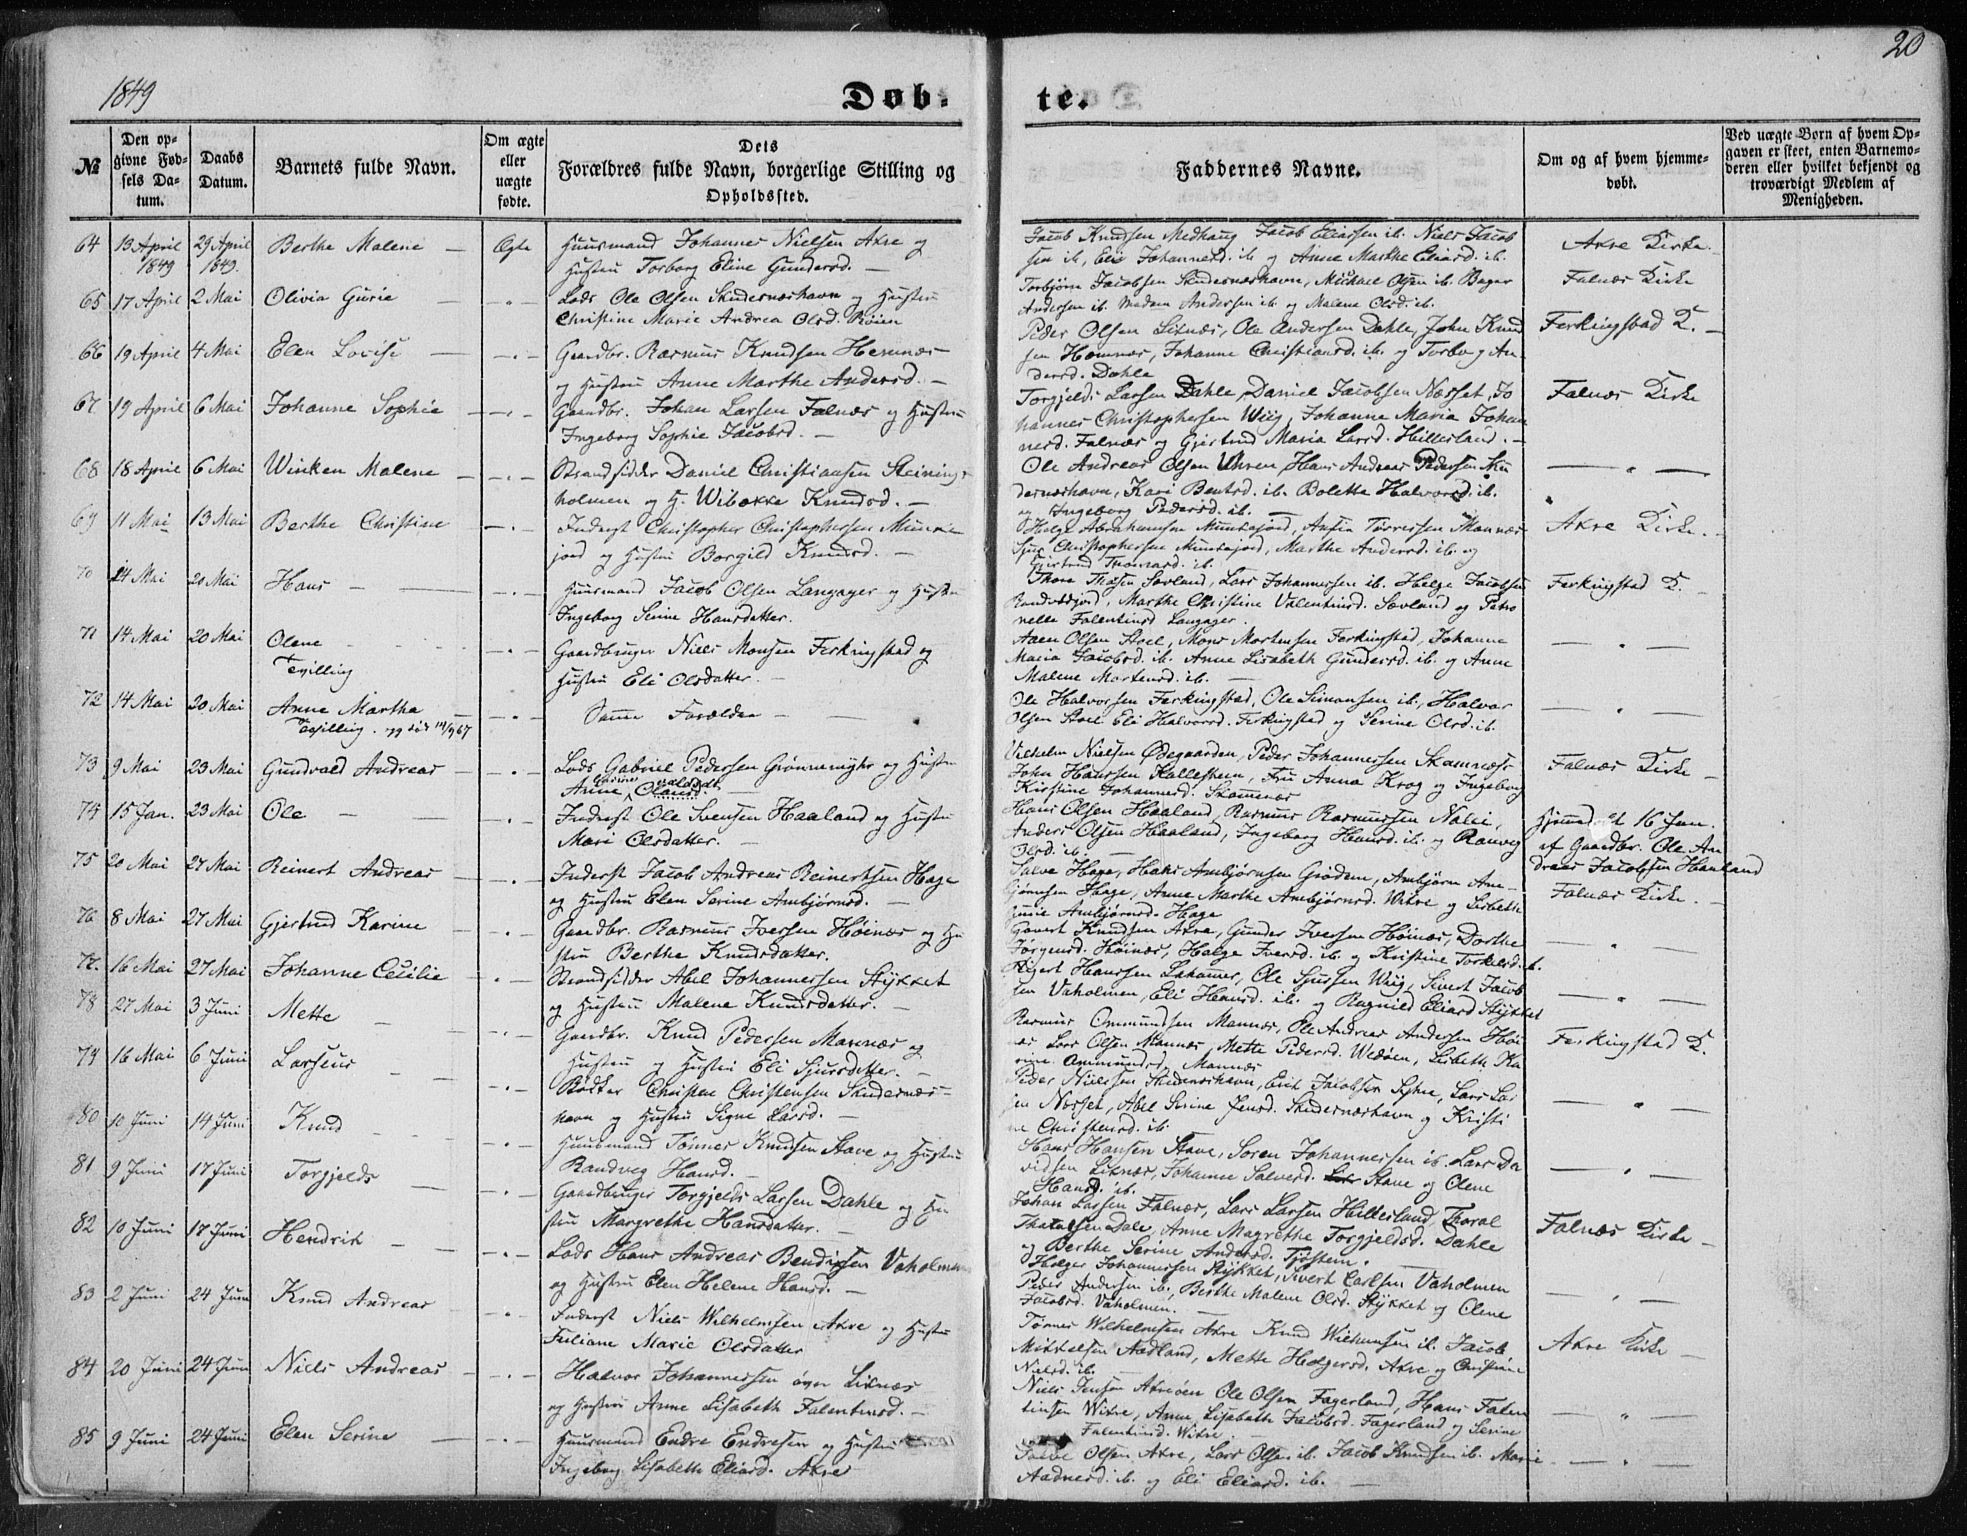 20
1849
Døb-
te.
№
Den op-
givne Fød-
sels Da-
tum.
Daabs
Datum.
Barnets fulde Navn.
Om ægte
eller
uægte
fødte.
Dets
Forældres fulde Navn, borgerlige Stilling og
Opholdssted.
Faddernes Navne.
Om og af hvem hjemme-
døbt.
Ved uægte Børn af hvem Op-
gaven er skeet, enten Barnemo-
deren eller hvilket bekjendt og
troværdigt Medlem af
Menigheden.
64 13 April 29 April Berthe Malene — Ægte Huusmand Johannes Nielsen Akre og
1849 1849.
Hustru Torborg Eline Gundersd. —
Jacob Knudsen Medhaug Jacob Eliassen ib. Niels Jacob
sen ib, Eli Johannesd. ib og Anne Marthe Eliasd. ib.
Akre Kirke
65 17 April 2 Mai Olivia Gurie — Lods Ole Olsen Skudesnæshavn og Hustru
Christine Marie Andrea Olsd.
Torbjørn Jacobsen Skudesnæshavn, Michael Olsen ib. Bager
Andersen ib. Madam Andersen ib. og Malene Olsd. ib.
Falnæs Kirke
66 19 April 4 Mai Elen Lovise — Gaardbr. Rasmus Knudsen Hemnæs
og Hustru Anne Marthe Andersd. —
Peder Olsen Liknæs, Ole Andersen Dahle, John Knud
sen Hemnæs, Johanne Christiansd. ib. og Torborg An
dersd. Dahle
Ferkingstad K. —
67 19 April 6 Mai Johanne Sophie — Gaardbr. Johan Larsen Falnæs og Hustru
Ingeborg Sophie Jacobsd. —
Torgjelds Larsen Dahle, Daniel Jacobsen Nærset, Jo
hannes Christophersen Wiig, Johanne Maria Johan
nesd. Falnæs og Gjertrud Maria Larsd. Hillesland. —
Falnæs Kirke
68 18 April 6 Mai Winken Malene — Strandsidder Daniel Christiansen Steinings
holmen og H. Wibekke Knudsd. —
Ole Andreas Olsen Uhren, Hans Andreas Pedersen Sku
desnæshavn, Kari Bentsd. ib. Bolette Halvorsd. ib.
og Ingeborg Pedersd. ib. —
69 11 Mai 13 Mai Berthe Christine — Inderst Christopher Christophersen Munke
jord og Hustru Borgild Knudsd. —
Helge Abrahamsen Munkejord, Tørresen Mannæs
Sjur Christophersen Munkejord, Marthe Andersd. ib. og
Gjertrud Thomasd. ib.
Akre Kirke.
70 14 Mai 20 Mai Hans — Huusmand Jacob Olsen Langager og Hustru
Ingeborg Serine Hansdatter.
Thore Sævland, Lars Johannessen ib. Helge Jacobsen
Marthe Christine Valentinsd. Sævland og Petro
nelle Falentinsd Langager.
Ferkingstad K.
71 14 Mai 20 Mai Olene
Tvilling
Gaardbruger Niels Monsen Ferkingstad og
Hustru Eli Olsdatter. —
Aaen Olsen Stoel, Mons Mortensen Ferkingstad, Johanne
Maria Jacobsd. ib. Anne Lisabeth Gundersd. ib. og Anne
Malene Mortensd. ib. —
72 14 Mai 20 Mai Anne Martha
Tvilling
Samme Forældre —
Ole Halvorsen Ferkingstad, Ole Simonsen ib., Halvor
Olsen Stoel Eli Halvorsd. Ferkingstad og Serine Olsd. ib.
73 9 Mai 23 Mai Gundvald Andreas — Lods Gabriel Pedersen Grønningen og Hustru
Anne
Vilhelm Nielsen Ødegaarden, Peder Johannessen
John Hansen Kallestein, Fru Anna Krog og Ingeborg
Kirstine Johannesd.
Falnæs Kirke —
74 15 Jan. 23 Mai Ole — Inderst Ole Svensen Haaland og Hustru
Mari Olsdatter. —
Hans Olsen Haaland, Rasmus Rasmussen
Anders Olsen Haaland, Ingeborg Hansd. ib. og Ranveg
Olsd. ib. —
16 Jan.
af Gaardbr. Ole An
dreas Jacobsen Haaland
75 20 Mai 27 Mai Reinert Andreas — Inderst Jacob Andreas Reinertsen Hage
og Hustru Elen Serine Ambjørnsd. —
Salve Hage, Hans Ambjørnsen Grødem, Ambjørn Am-
bjørnsen Hage, Anne Marthe Ambjørnsd. Witre og Lisbeth
Ambjørnsd. Hage
Falnæs Kirke. —
76 8 Mai 27 Mai Gjertrud Karine — Gaardbr. Rasmus Iversen Høinæs og Hu
stru Berthe Knudsdatter.
Govert Knudsen Akre, Gunder Iversen Høinæs, Dorthe
Jørgensd. Høinæs, Helge Iversd. ib. og Kristine Torkelsd. ib.
77. 16 Mai 27 Mai Johanne Cecilie — Strandsidder Abel Johannessen Stykket
og Hustru Malene Knudsdatter. —
Ole Sjursen Wiig, Sivert Jacob
sen Vaholmen, Eli Hansd. ib. og Ragnild Eliasd Stykket
78 27 Mai 3 Juni Mette — Gaardbr. Knud Pedersen Mannæs og
Hustru og Hustru Eli Sjursdatter. —
Rasmus Ommundsen Mannæs, Ole Andreas Andersen Høi
næs Lars Olsen Mannæs, Mette Pedersd. Wedøen, Lisbeth Ka
rine Ommundsd. Mannæs
Ferkingstad K.
79 16 Mai 6 Juni Larseus — Bødker Christen Christensen Skudesnæs-
havn og Hustru Signe Larsd. —
Peder Nielsen Skudesnæshavn, Erik Jacobsen Syre, Lars Lar
sen Nærset, Abel Serine Jensd. Skudesnæshavn og Kristi
ne Christensd. ib.
80 10 Juni 14 Juni Knud — Huusmand Tønnes Knudsen Stave og Hustru
Randveg Hansd. —
Hans Hansen Stave, Søren Johannessen ib. Lars Da
vidsen Liknæs, Johanne Salvesd. Stave og Olene
Hansd. ib.
81 9 Juni 17 Juni Torgjelds — Gaardbruger Torgjelds Larsen Dahle og Hu
stru Margrethe Hansdatter. —
Johan Larsen Falnæs, Lars Larsen Hillesland, Thoral
Dale, Anne Magrethe Torgjeldsd. Dahle
og Berthe Serine Andersd. Tjøstem.
Falnæs Kirke —
82 10 Juni 17 Juni Hendrik — Lods Hans Andreas Bendixsen Vaholmen
og Hustru Elen Helene Hansd. —
Holger Johannessen Stykket, Sivert Carlsen Vaholmen
Peder Andersen ib., Berthe Malene Olsd. Stykket og Olene
Jacobsd. Vaholmen. —
83 2 Juni 24 Juni Knud Andreas — Inderst Niels Wilhelmsen Akre og Hustru
Juliane Marie Olsdatter
Tønnes Wilhelmsen Akre Knud Wilhelmsen ib. Jacob
Mikkelsen Aadland, Mette Holgersd. Akre og Christine
Nielsd. ib.
Akre Kirke —
84 20 Juni 24 Juni Niels Andreas — Halvor Johannessen øvre Liknæs
og Hustru Anne Lisabeth Falentinsd. —
Niels Jensen Akreøen Ole Olsen Fagerland, Hans Falen
tinsen Witre, Anne Lisabeth Jacobsd. Fagerland og Serine
Falentinsd. Witre —
85 9 Juni 24 Juni Elen Serine — Huusmand Endre Endresen og Hustru
Ingeborg Lisabeth Eliasd. Akre
Olsen Akre, Lars Olsen ib. Jacob Knudsen ib. Mari
Aadnesd. ib. og Eli Eliasd. ib. —